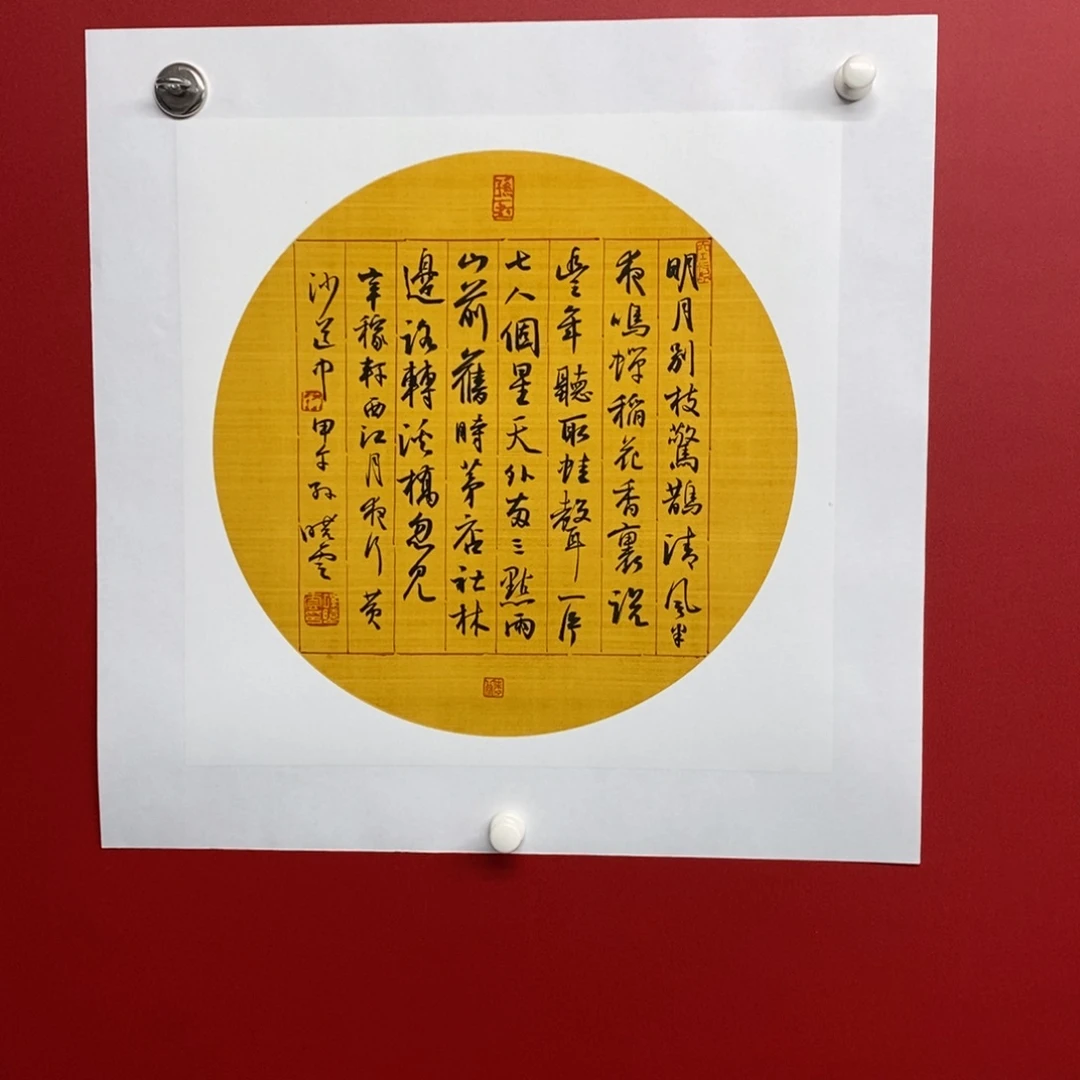 明月别枝驚鵲清風半
夜鳴蟬稻花香裏説
豐年聽取蛙聲一片
七八個星天外兩三點雨
山前舊時茅店社林
邊路轉溪橋忽見
辛稼軒西江月夜行黄
沙道中 甲午孫曉雲